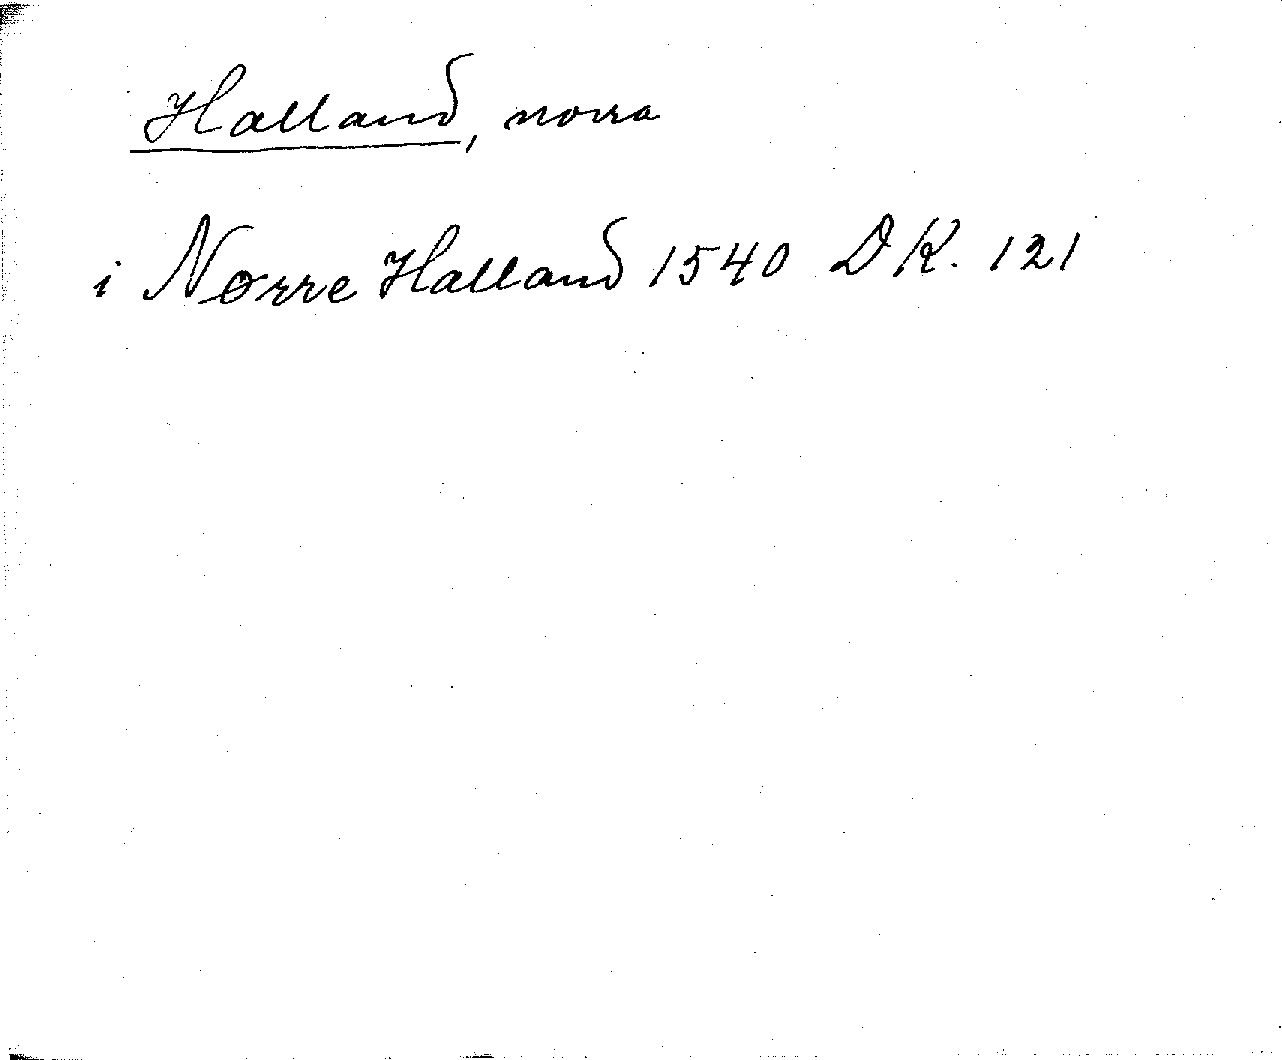 Halland, norra
i Nørre Halland 1540 DK. 121